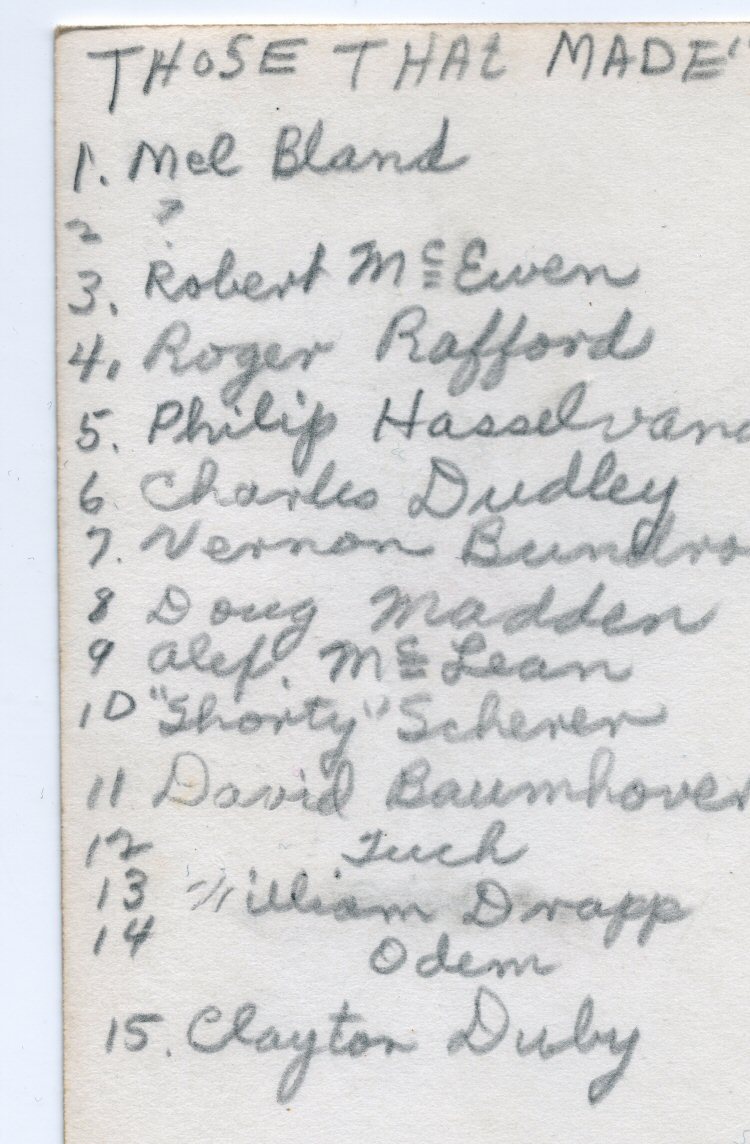 THOSE THAt MADE"
1. Mel Bland
2 ?
3. Robert McEwen
4. Roger Rafford
5. Philip Hasselvand
6 Charles Dudley
7. Vernon Bundro
8 Doug Madden
9 Alex. McLean
10 "Shorty" Scherer
11 David Baumhover
12 Tuch
13 William Drapp
14 Odem
15. Clayton Duby